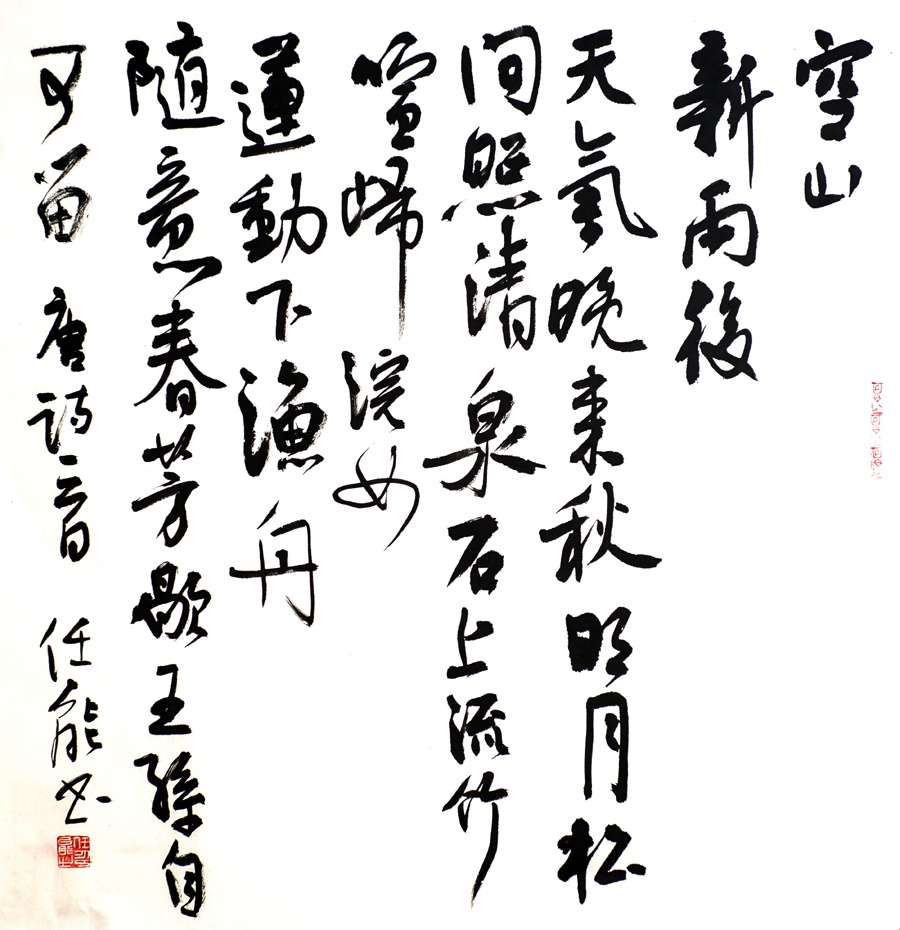 空山
新雨後
天氣晚来秋明月松
间照清泉石上流竹
喧歸浣女
蓮動下漁舟
随意春芳歇王孫自
可留 唐詩一首 任能书